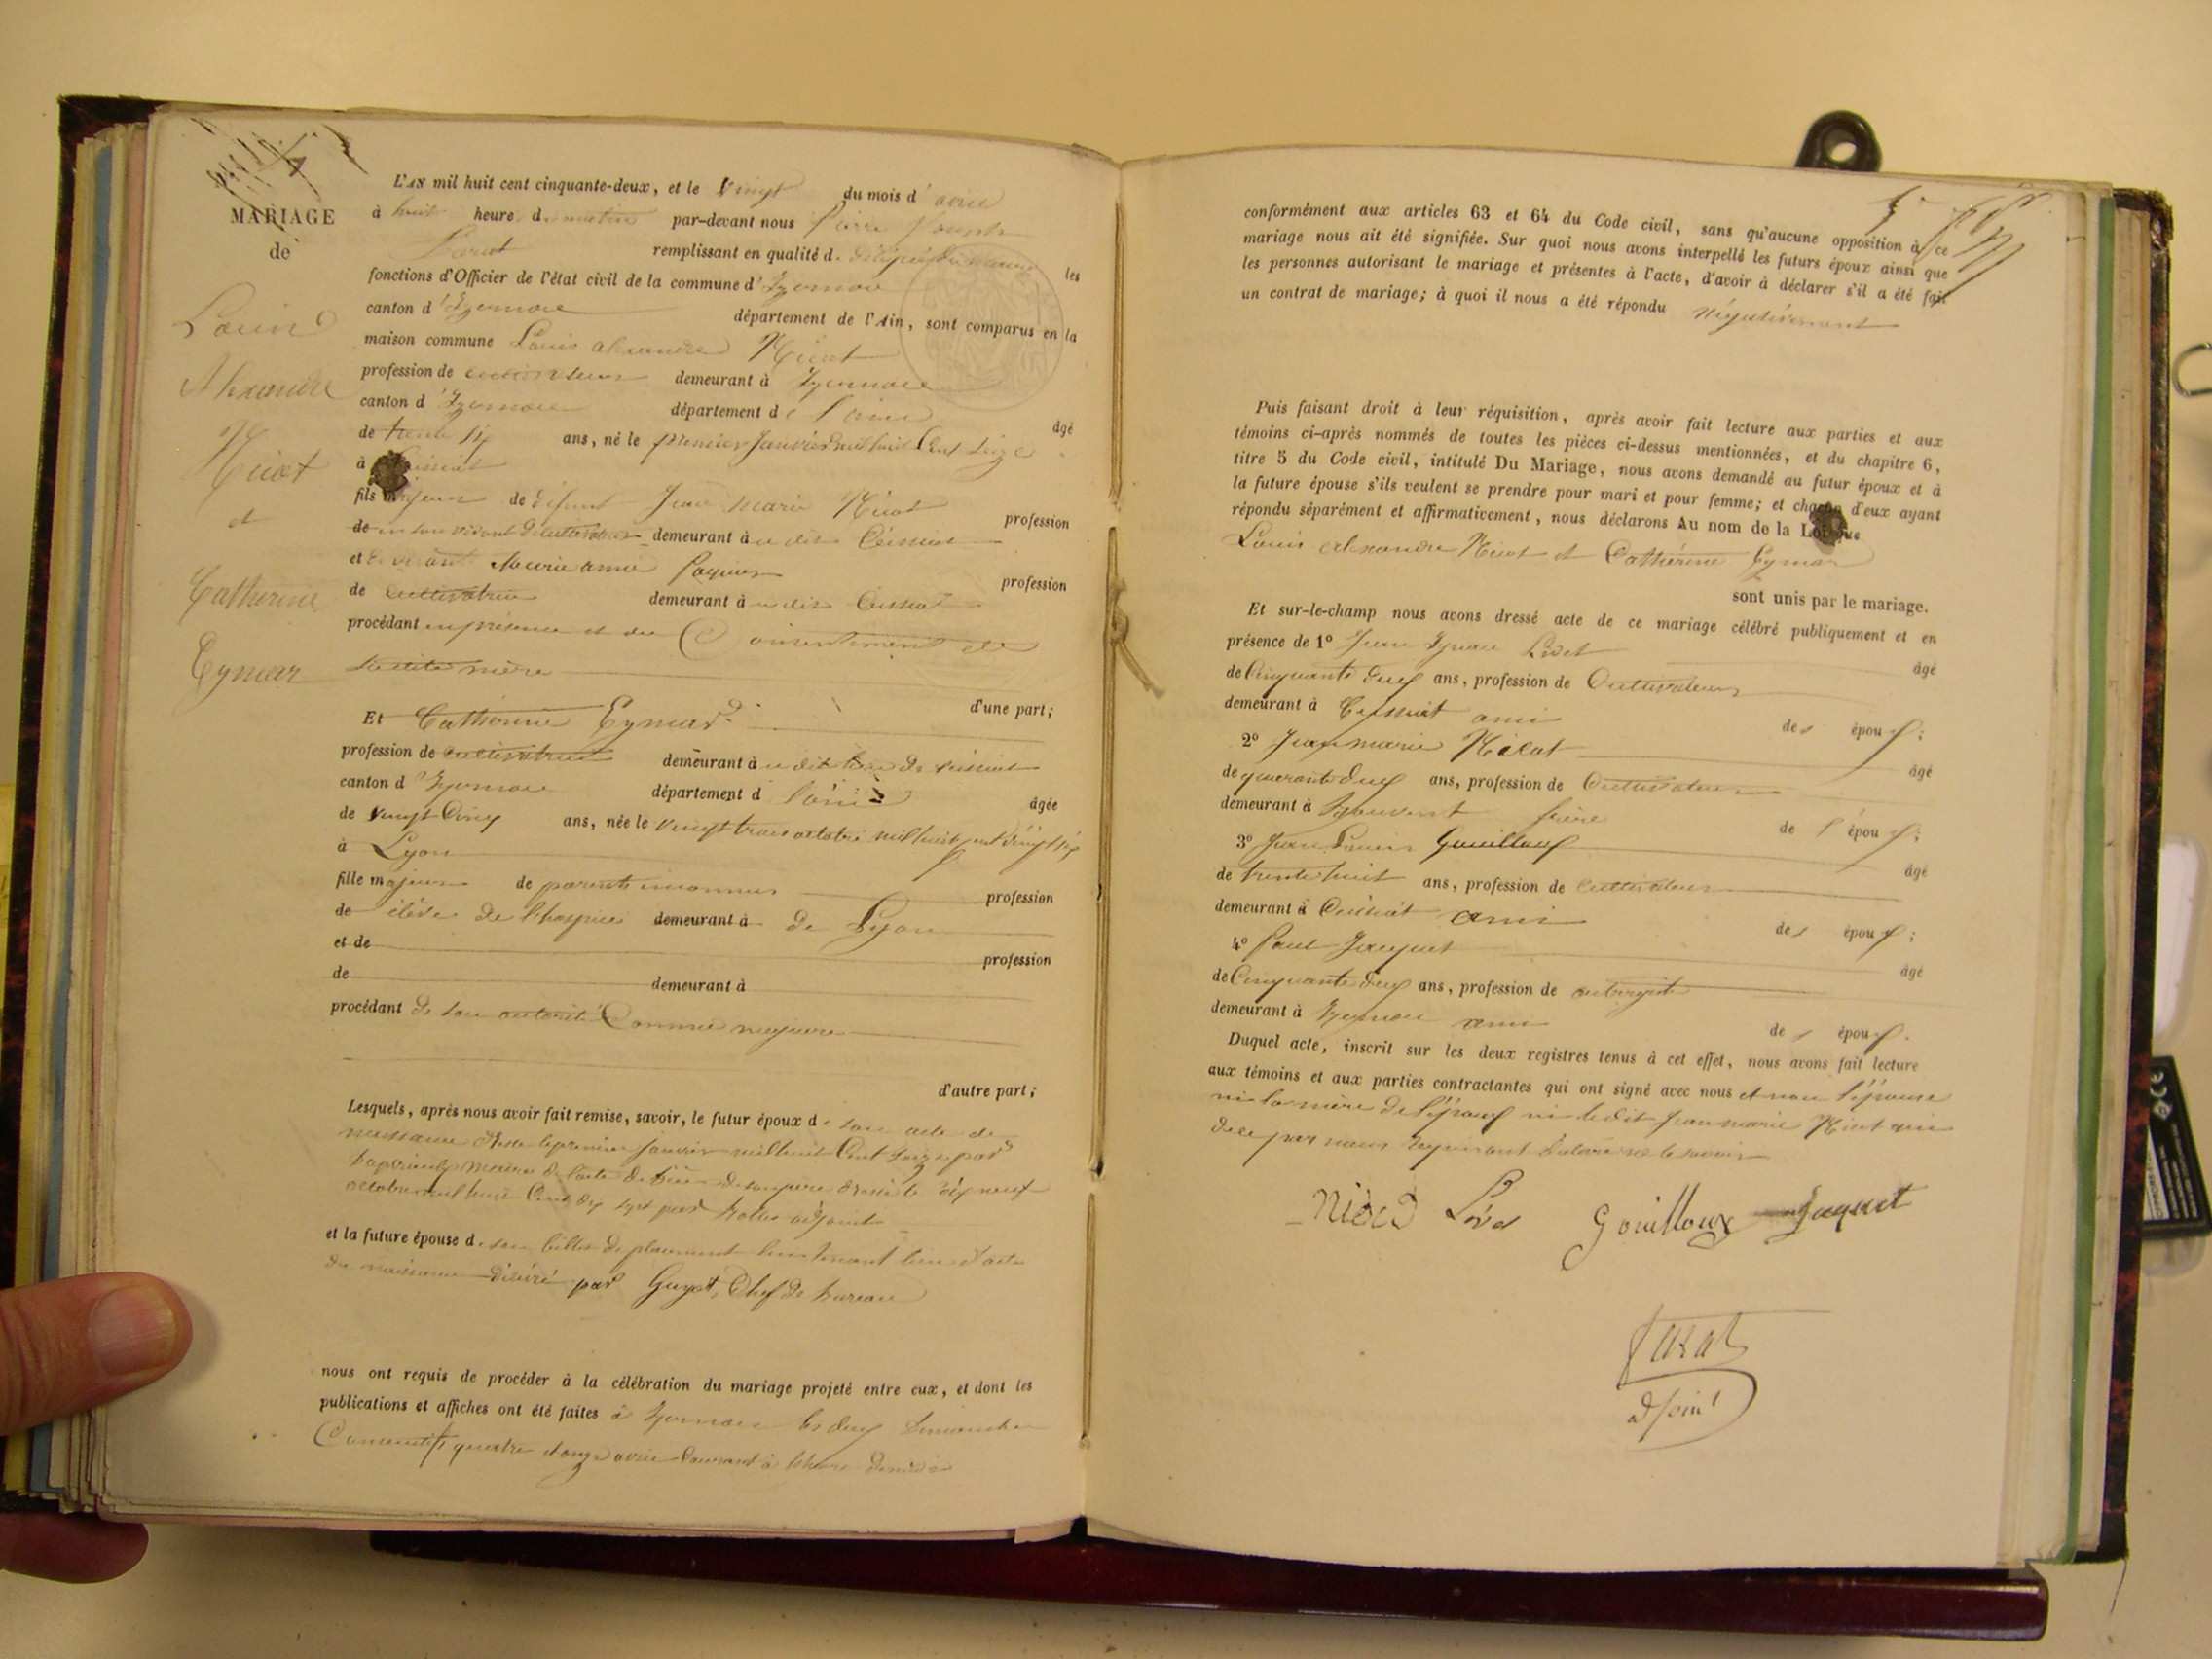 MARIAGE
de
Louis
Alexandre
Nicot
et
Catherine
Eymar
L'AN mil huit cent cinquante-deux, et le vingt du mois d' avril
à huit heure du matin par-devant nous Pierre Joseph
remplissant en qualité d les
fonctions d'Officier de l'état civil de la commune d'Izernore
canton d'Izernore département de l'Ain, sont comparus en la
maison commune Louis alexandre Nicot
profession de cultivateur demeurant à Izernore
canton d'Izernore département de l'ain âgé
de trente six ans, né le premier Janvier mil huit Cent Seize
à Ceissiat
fils majeur de défunt Jean marie Nicot profession
de en son vivant Cultivateur demeurant à u dit Ceissiat
et de vivante Marie anne profession
de Cultivatrice demeurant à u dit Ceissiat
procédant en présence et du Consentement de
sa dite mère
d'une part;
Et Catherine Eymar
profession de cultivatrice demeurant à u dit lieu de Ceissiat
canton d'Izernore département d l'ain âgée
de vingt Cinq ans, née le vingt trois octobre mil huit cent vingt six
à Lyon
fille majeure de parents inconnus profession
de élève de l'hospice demeurant à de Lyon
et de profession
de demeurant à
procédant de son autorité Comme majeure
d'autre part;
Lesquels, après nous avoir fait remise, savoir, le futur époux de son acte de
naissance dressé le premier Janvier mil huit Cent Seize par
maire & l'acte de décès de son père dressé le dix neuf
octobre mil huit Cent dix sept par adjoint
et la future épouse de son billet de placement lui tenant lieu d'acte
de naissance délivré par Guyot, Chef de bureau
nous ont requis de procéder à la célébration du mariage projeté entre eux, et dont les
publications et affiches ont été faites à Izernore les deux dimanches
Consecutifs quatre et onze avril Courant à l'heure de midi
conformément aux articles 63 et 64 du Code civil, sans qu'aucune opposition à ce
mariage nous ait été signifiée. Sur quoi nous avons interpellé les futurs époux ainsi que
les personnes autorisant le mariage et présentes à l'acte, d'avoir à déclarer s'il a été fait
un contrat de mariage; à quoi il nous a été répondu Négativement
Puis faisant droit à leur réquisition, après avoir fait lecture aux parties et aux
témoins ci-après nommés de toutes les pièces ci-dessus mentionnées, et du chapitre 6,
titre 5 du Code civil, intitulé Du Mariage, nous avons demandé au futur époux et à
la future épouse s'ils veulent se prendre pour mari et pour femme; et chacun d'eux ayant
répondu séparément et affirmativement, nous déclarons Au nom de la Loi que
Louis alexandre Nicot et Catherine Eymar
sont unis par le mariage.
Et sur-le-champ nous avons dressé acte de ce mariage célébré publiquement et en
présence de 1º Jean âgé
de Cinquante deux ans, profession de Cultivateur
demeurant à Ceissiat ami des époux;
2º Jean marie Nicot âgé
de quarante deux ans, profession de Cultivateur
demeurant à frère de l'époux;
3º Jean Louis Gouilloux âgé
de trente huit ans, profession de Cultivateur
demeurant à Ceissiat ami des époux;
4º Paul Jacquet âgé
de Cinquante deux ans, profession de aubergiste
demeurant à Izernore ami des époux.
Duquel acte, inscrit sur les deux registres tenus à cet effet, nous avons fait lecture
aux témoins et aux parties contractantes qui ont signé avec nous et non l'épouse
ni la mère de l'époux ni le dit Jean marie Nicot qui
de ce par nous requis ont déclaré ne le savoir
Gouilloux Jaquet
adjoint